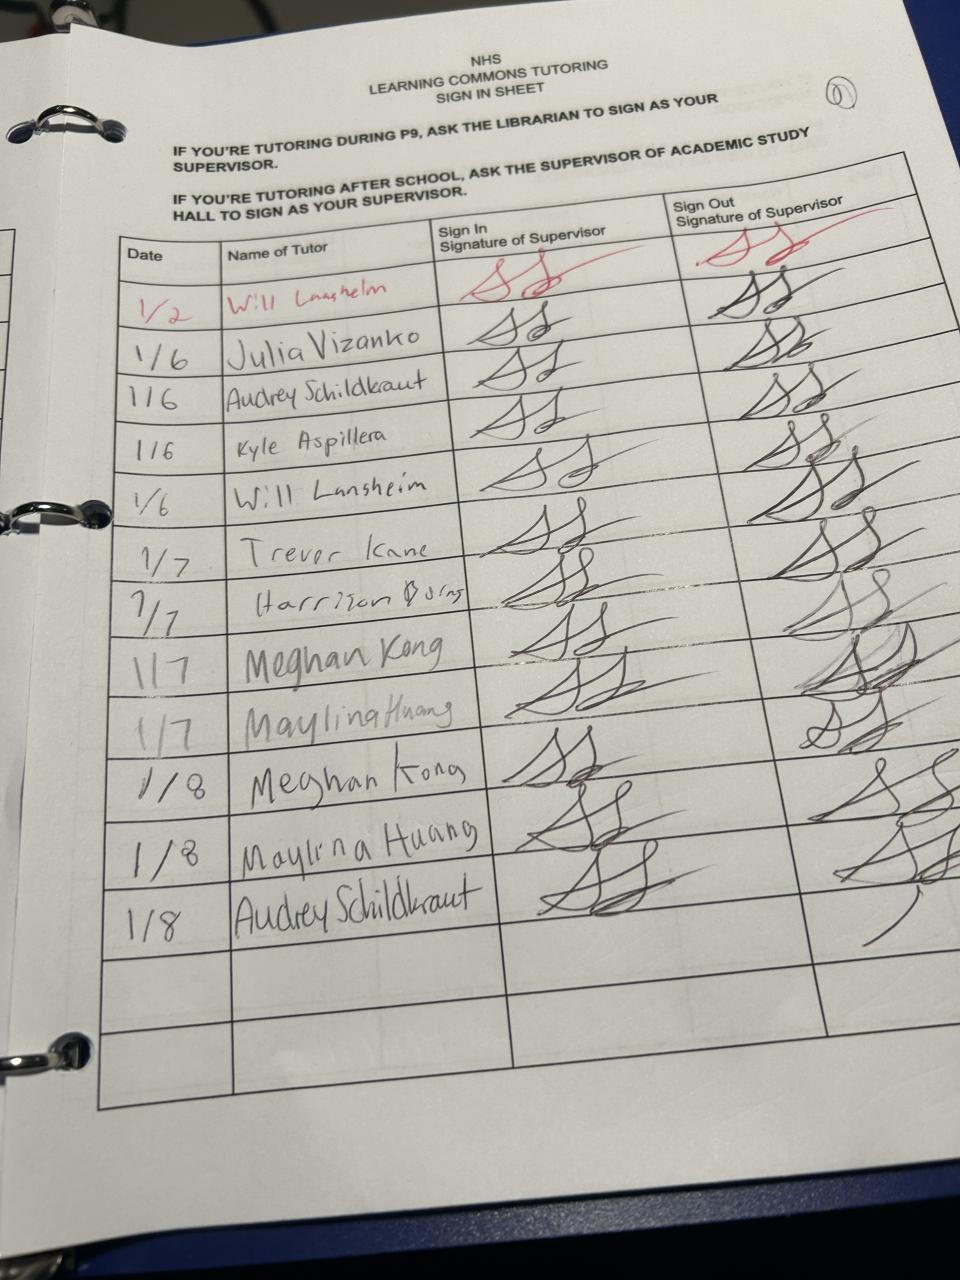 NHS
LEARNING COMMONS TUTORING
SIGN IN SHEET
IF YOU'RE TUTORING DURING P9, ASK THE LIBRARIAN TO SIGN AS YOUR
SUPERVISOR.
IF YOU'RE TUTORING AFTER SCHOOL, ASK THE SUPERVISOR OF ACADEMIC STUDY
HALL TO SIGN AS YOUR SUPERVISOR.
Date Name of Tutor Sign In Signature of Supervisor Sign Out Signature of Supervisor
1/2 Will Lansheim
1/6 Julia Vizanko
1/6 Audrey Schildkraut
1/6 Kyle Aspillera
1/6 Will Lansheim
1/7 Trever Kane
1/7 Harrison
1/7 Meghan Kong
1/7 Maylina Huang
1/8 Meghan Kong
1/8 Maylina Huang
1/8 Audrey Schildkraut